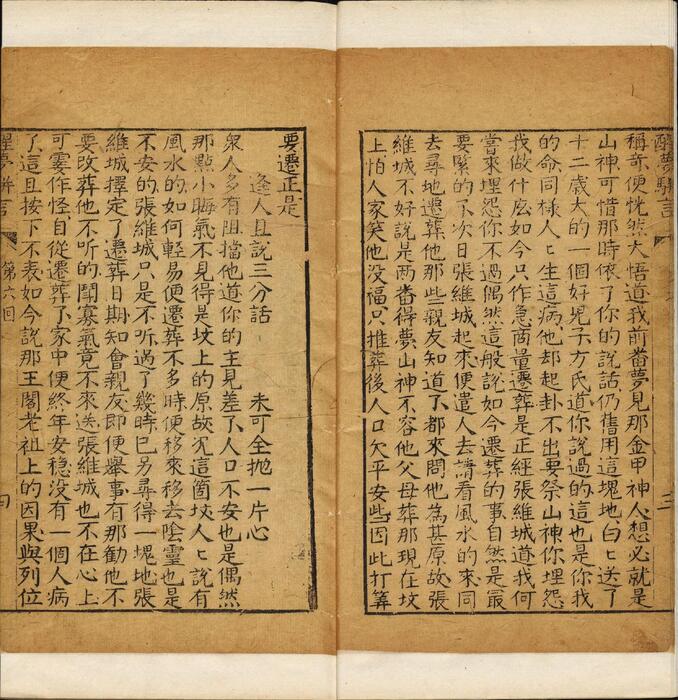 醒夢駢言
三
稱奇便恍然大悟道我前番夢見那金甲神人想必就是
山神可惜那時依了你的說話仍舊用這塊地白ヒ送了
十二歲大的一個好兒子方氏道你說過的這也是你我
的命同樣人ヒ生這病他却起卦不出要祭山神你埋怨
我做什庅如今只作急商量遷葬是正經張維城道我何
當來埋怨你不過偶然這般說如今遷葬的事自然是最
要緊的了次日張維城起來便遣人去請看風水的來同
去尋地遷葬他那些親友知道了都來問他為甚原故張
維城不好說是兩番得夢山神不容他父母葬那現在坟
上怕人家笑他没福只推葬後人口欠平安些因此打筭
要遷正是
逢人且說三分話 未可全抛一片心
眾人多有阻擋他道你的主見差了人口不安也是偶然
那點小晦氣不見得是坟上的原故况這箇坟人ヒ說有
風水的如何輕易便遷葬不多時便移來移去陰靈也是
不安的張維城只是不听過了幾時已另尋得一塊地張
維城擇定了遷葬日期知會親友即便舉事有那勸他不
要改葬他不听的鬪寡氣竟不來送張維城也不在心上
可霎作怪自從遷葬了家中便終年安穩没有一個人病
了這且按下不表如今說那王閣老祖上的因果與列位
醒夢駢言
第六回
四